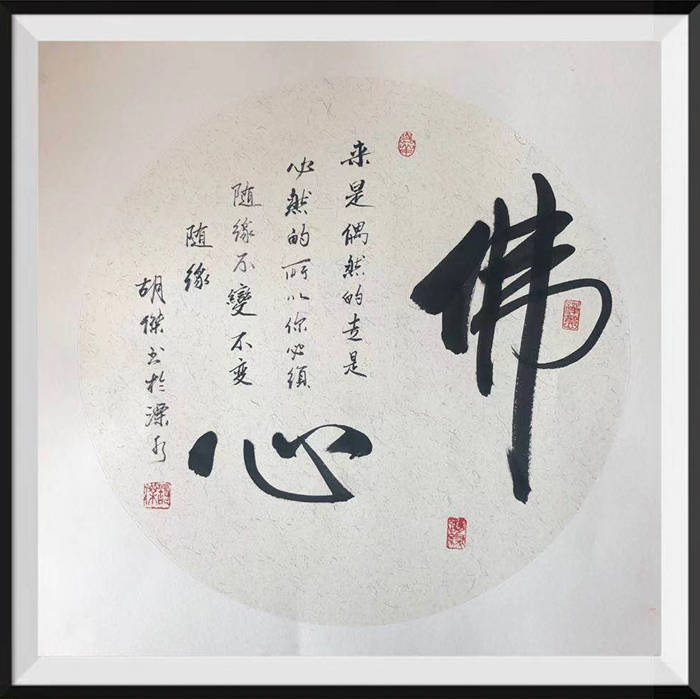 佛
心
来是偶然的走是
必然的所以你必须
随缘不變不变
随缘
胡傑书於溧水